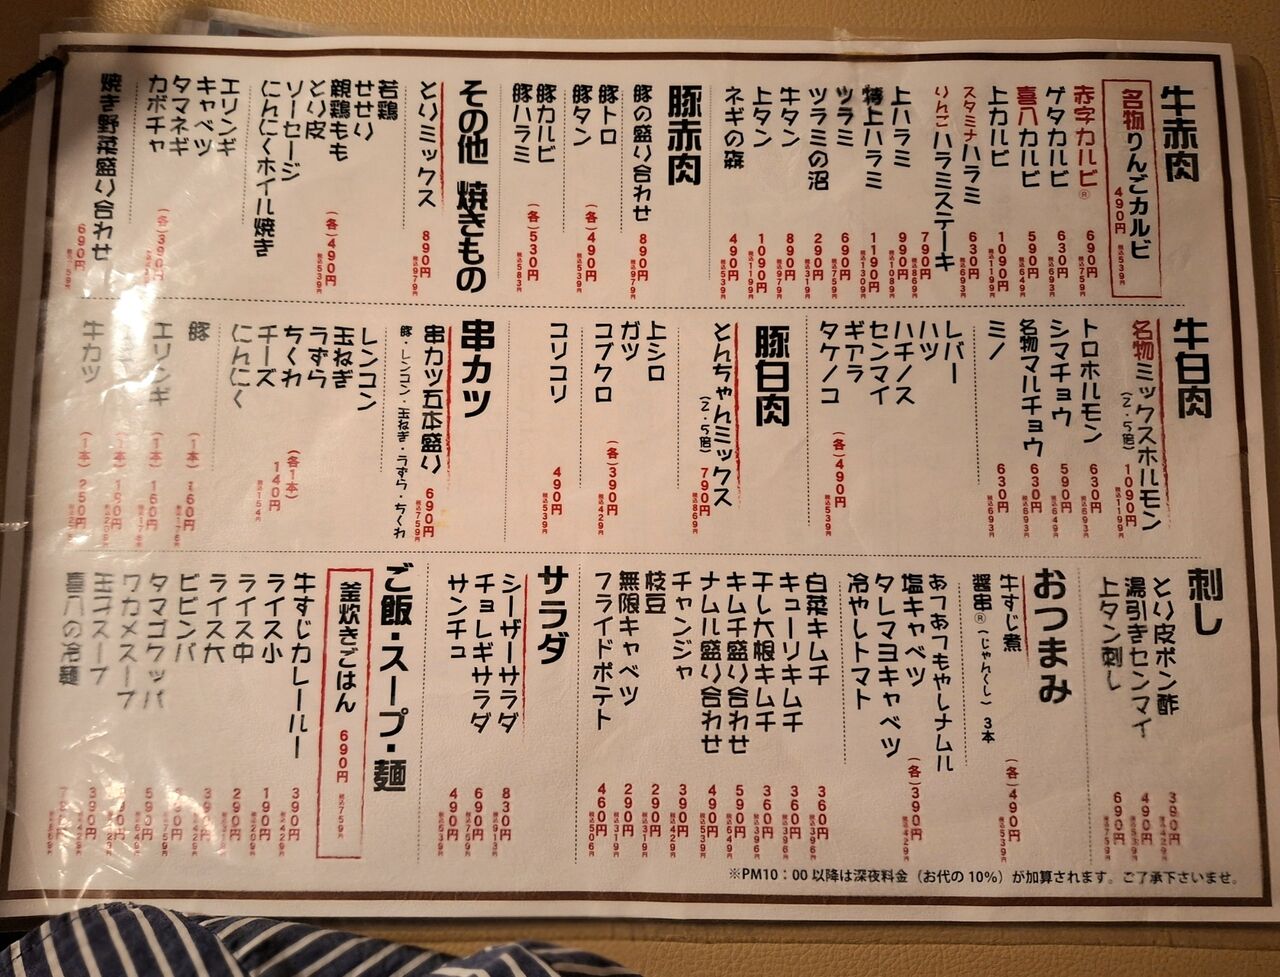 牛赤肉
名物りんごカルビ 490円 税込539円
赤字カルビ® 690円 税込759円
ゲタカルビ 630円 税込693円
喜八カルビ 590円 税込649円
上カルビ 1090円 税込1199円
スタミナハラミ 630円 税込693円
りんごハラミステーキ 790円 税込869円
上ハラミ 990円 税込1089円
特上ハラミ 1190円 税込1309円
ツラミ 690円 税込759円
ツラミの沼 290円 税込319円
牛タン 890円 税込979円
上タン 1090円 税込1199円
ネギの森 490円 税込539円
豚赤肉
豚の盛り合わせ 890円 税込979円
豚トロ
豚タン
(各)490円 税込539円
豚カルビ
豚ハラミ
(各)530円 税込583円
その他 焼きもの
とりミックス 890円 税込979円
若鶏
せせり
親鶏もも
とり皮
ソーセージ
にんにくホイル焼き
(各)490円 税込539円
エリンギ
キャベツ
タマネギ
カボチャ
(各)390円
焼き野菜盛り合わせ 690円 税込759円
牛白肉
名物ミックスホルモン (2.5倍) 1090円 税込1199円
トロホルモン 630円 税込693円
シマチョウ 590円 税込649円
名物マルチョウ 630円 税込693円
ミノ 630円 税込693円
レバー
ハツ
ハチノス
センマイ
ギアラ
タケノコ
(各)490円 税込539円
豚白肉
とんちゃんミックス (2.5倍) 790円 税込869円
上シロ
ガツ
コブクロ
(各)390円 税込429円
コリコリ 490円 税込539円
串カツ
串カツ五本盛り 690円 税込759円
豚・レンコン・玉ねぎ・うずら・ちくわ
レンコン
玉ねぎ
うずら
ちくわ
チーズ
にんにく
(各1本) 140円 税込154円
豚 (1本) 160円 税込176円
エリンギ (1本) 160円 税込176円
(1本) 190円 税込209円
牛カツ (1本) 250円
刺し
とり皮ポン酢 390円 税込429円
湯引きセンマイ 490円 税込539円
上タン刺し 690円 税込759円
おつまみ
牛すじ煮
醤串®(じゃんくし) 3本
(各)490円 税込539円
あつあつもやしナムル
塩キャベツ
タレマヨキャベツ
冷やしトマト
(各)390円 税込429円
白菜キムチ 360円 税込396円
キューリキムチ 360円 税込396円
干し大根キムチ 360円 税込396円
キムチ盛り合わせ 590円 税込649円
ナムル盛り合わせ 490円 税込539円
チャンジャ 390円 税込429円
枝豆 290円 税込319円
無限キャベツ 290円 税込319円
フライドポテト 460円 税込506円
サラダ
シーザーサラダ 830円 税込913円
チョレギサラダ 690円 税込759円
サンチュ 490円 税込539円
ご飯・スープ・麺
釜炊きごはん 690円 税込759円
牛すじカレールー 390円 税込429円
ライス小 190円 税込209円
ライス中 290円
ライス大
ビビンバ 690円 税込759円
タマゴクッパ 590円 税込649円
ワカメスープ
玉子スープ 390円 税込429円
喜八の冷麺
※PM10：00以降は深夜料金(お代の10%)が加算されます。ご了承下さいませ。